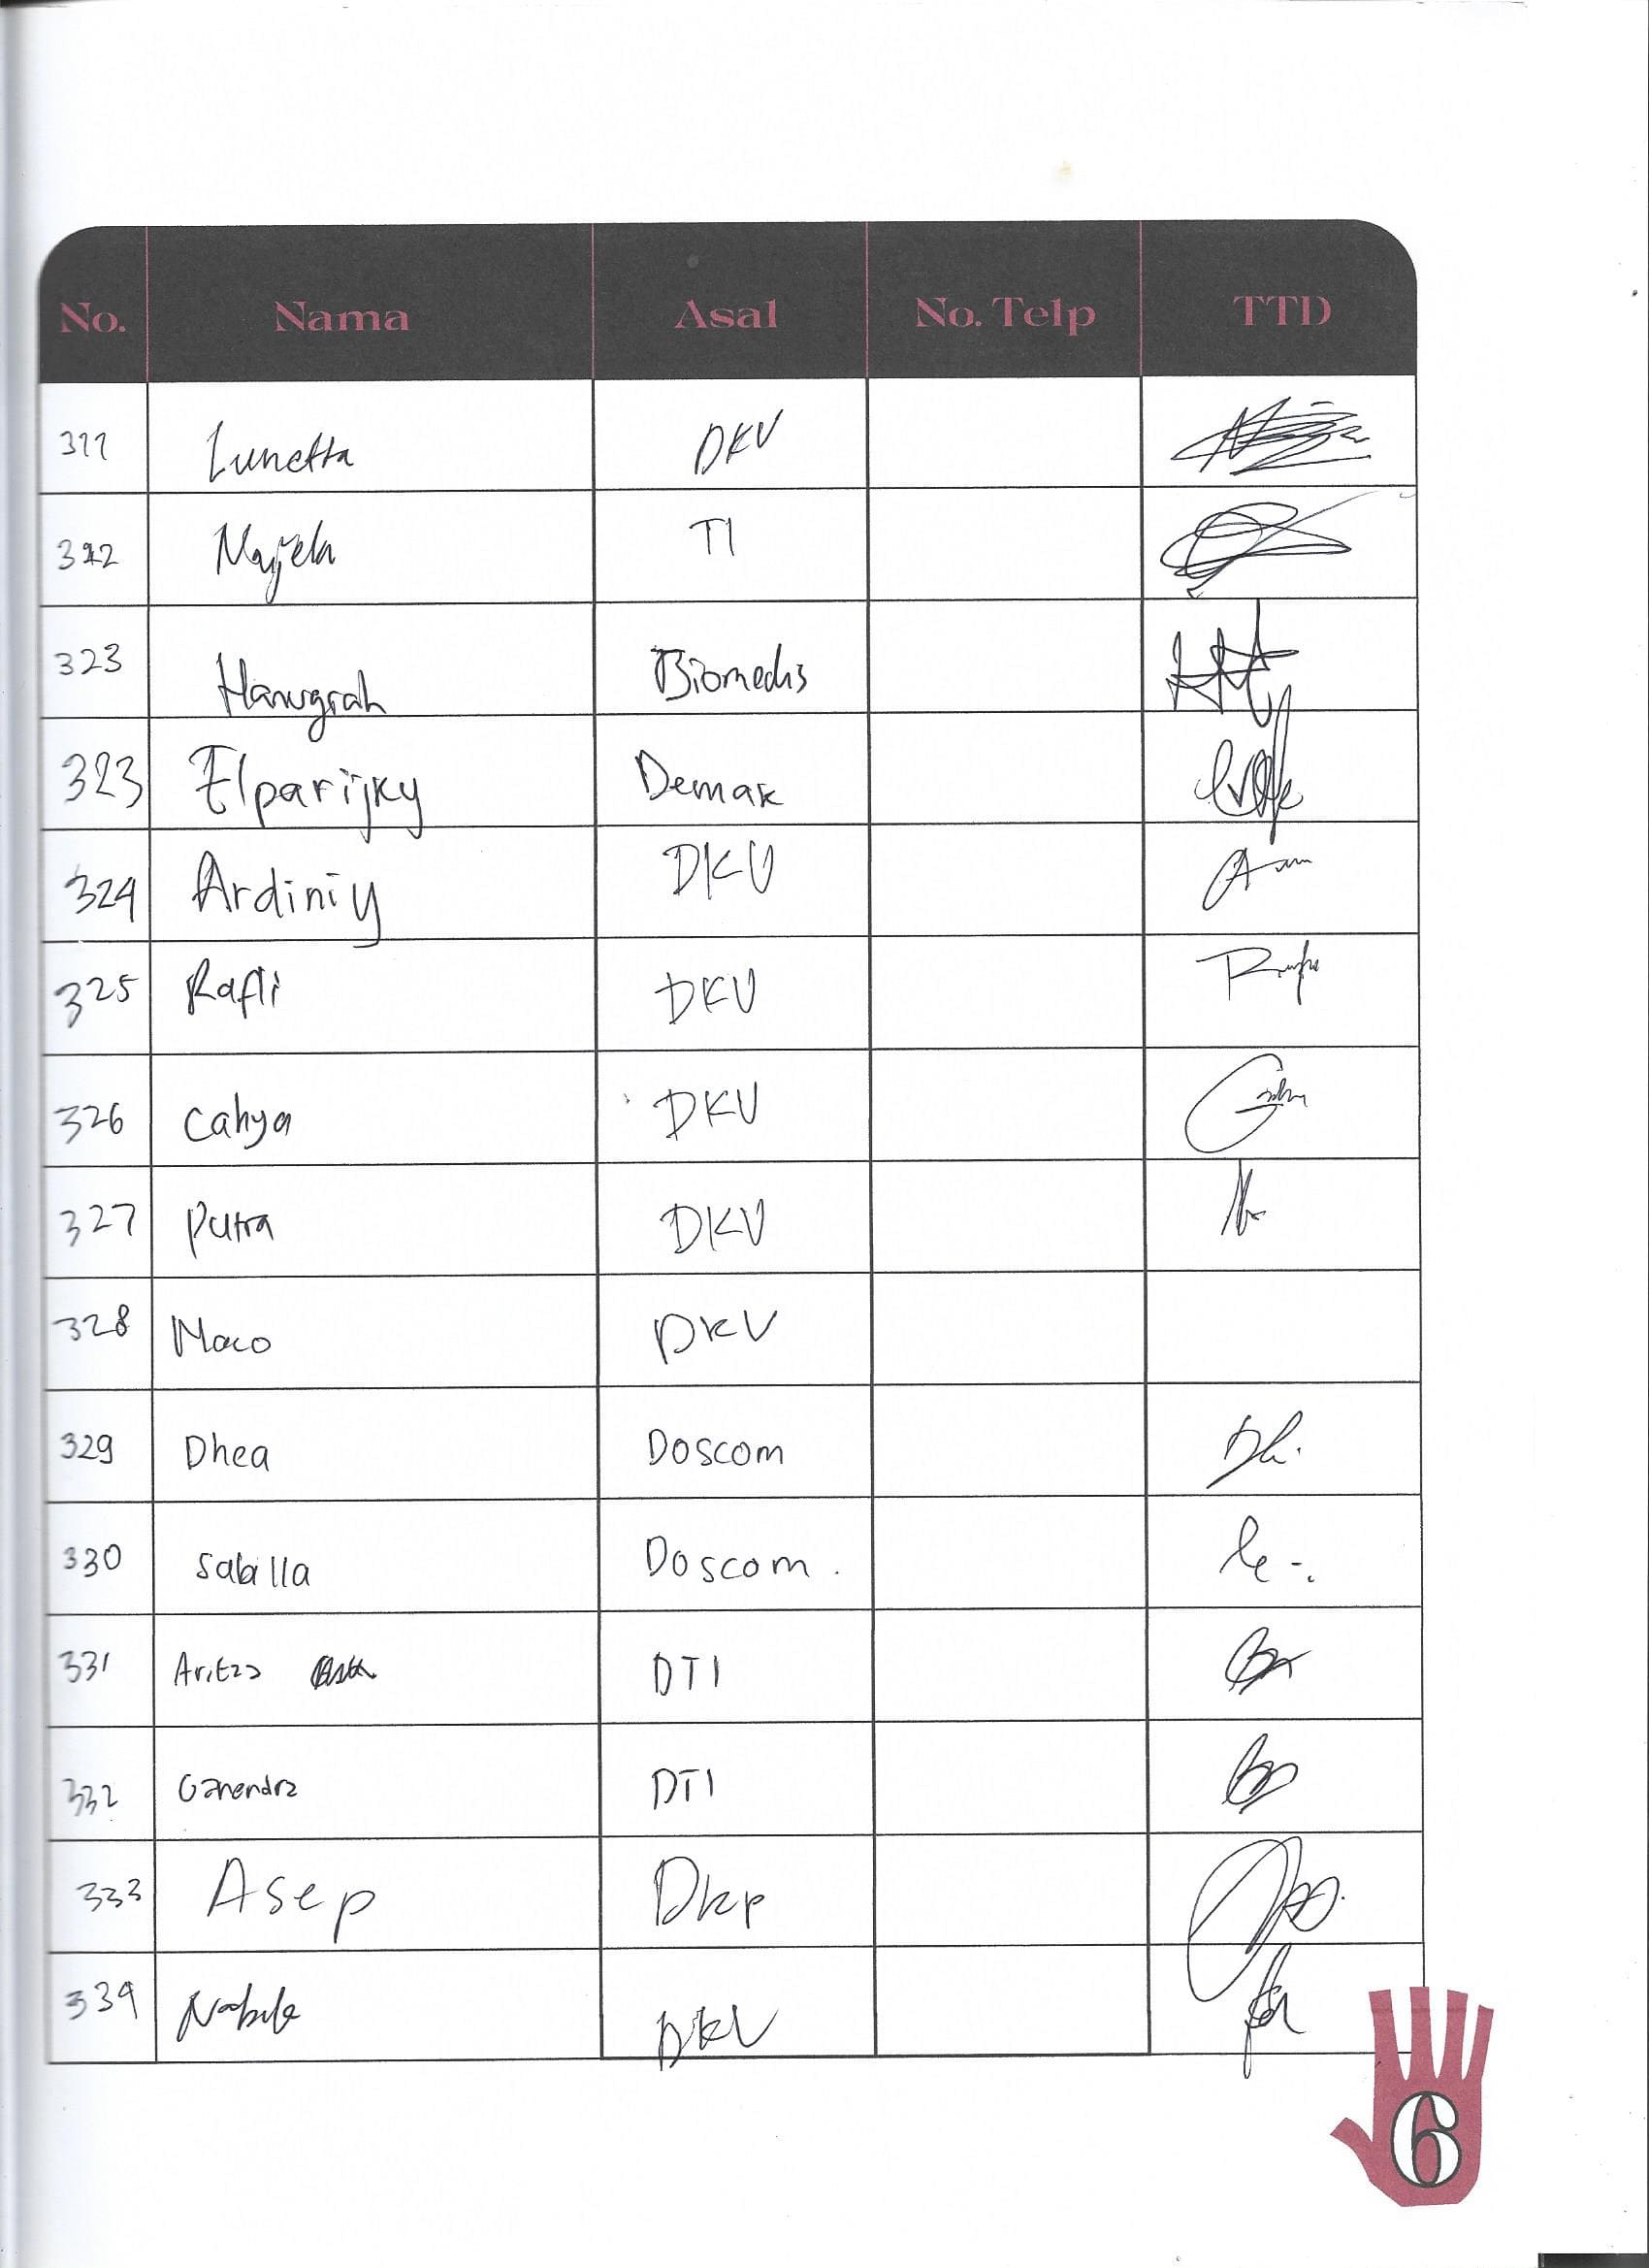 No. Nama Asal No. Telp TTD
311 Lunetta DKV
322 Najela TI
323 Hanugrah Biomedis
323 Elparijky Demak
324 Ardiniy DKV
325 Rafli DKV
326 Cahya DKV
327 Putra DKV
328 Maco DKV
329 Dhea Doscom
330 Sabilla Doscom.
331 Aritzs DTI
332 Ganendra DTI
333 Asep Dkp
334 Nabila DKV
6